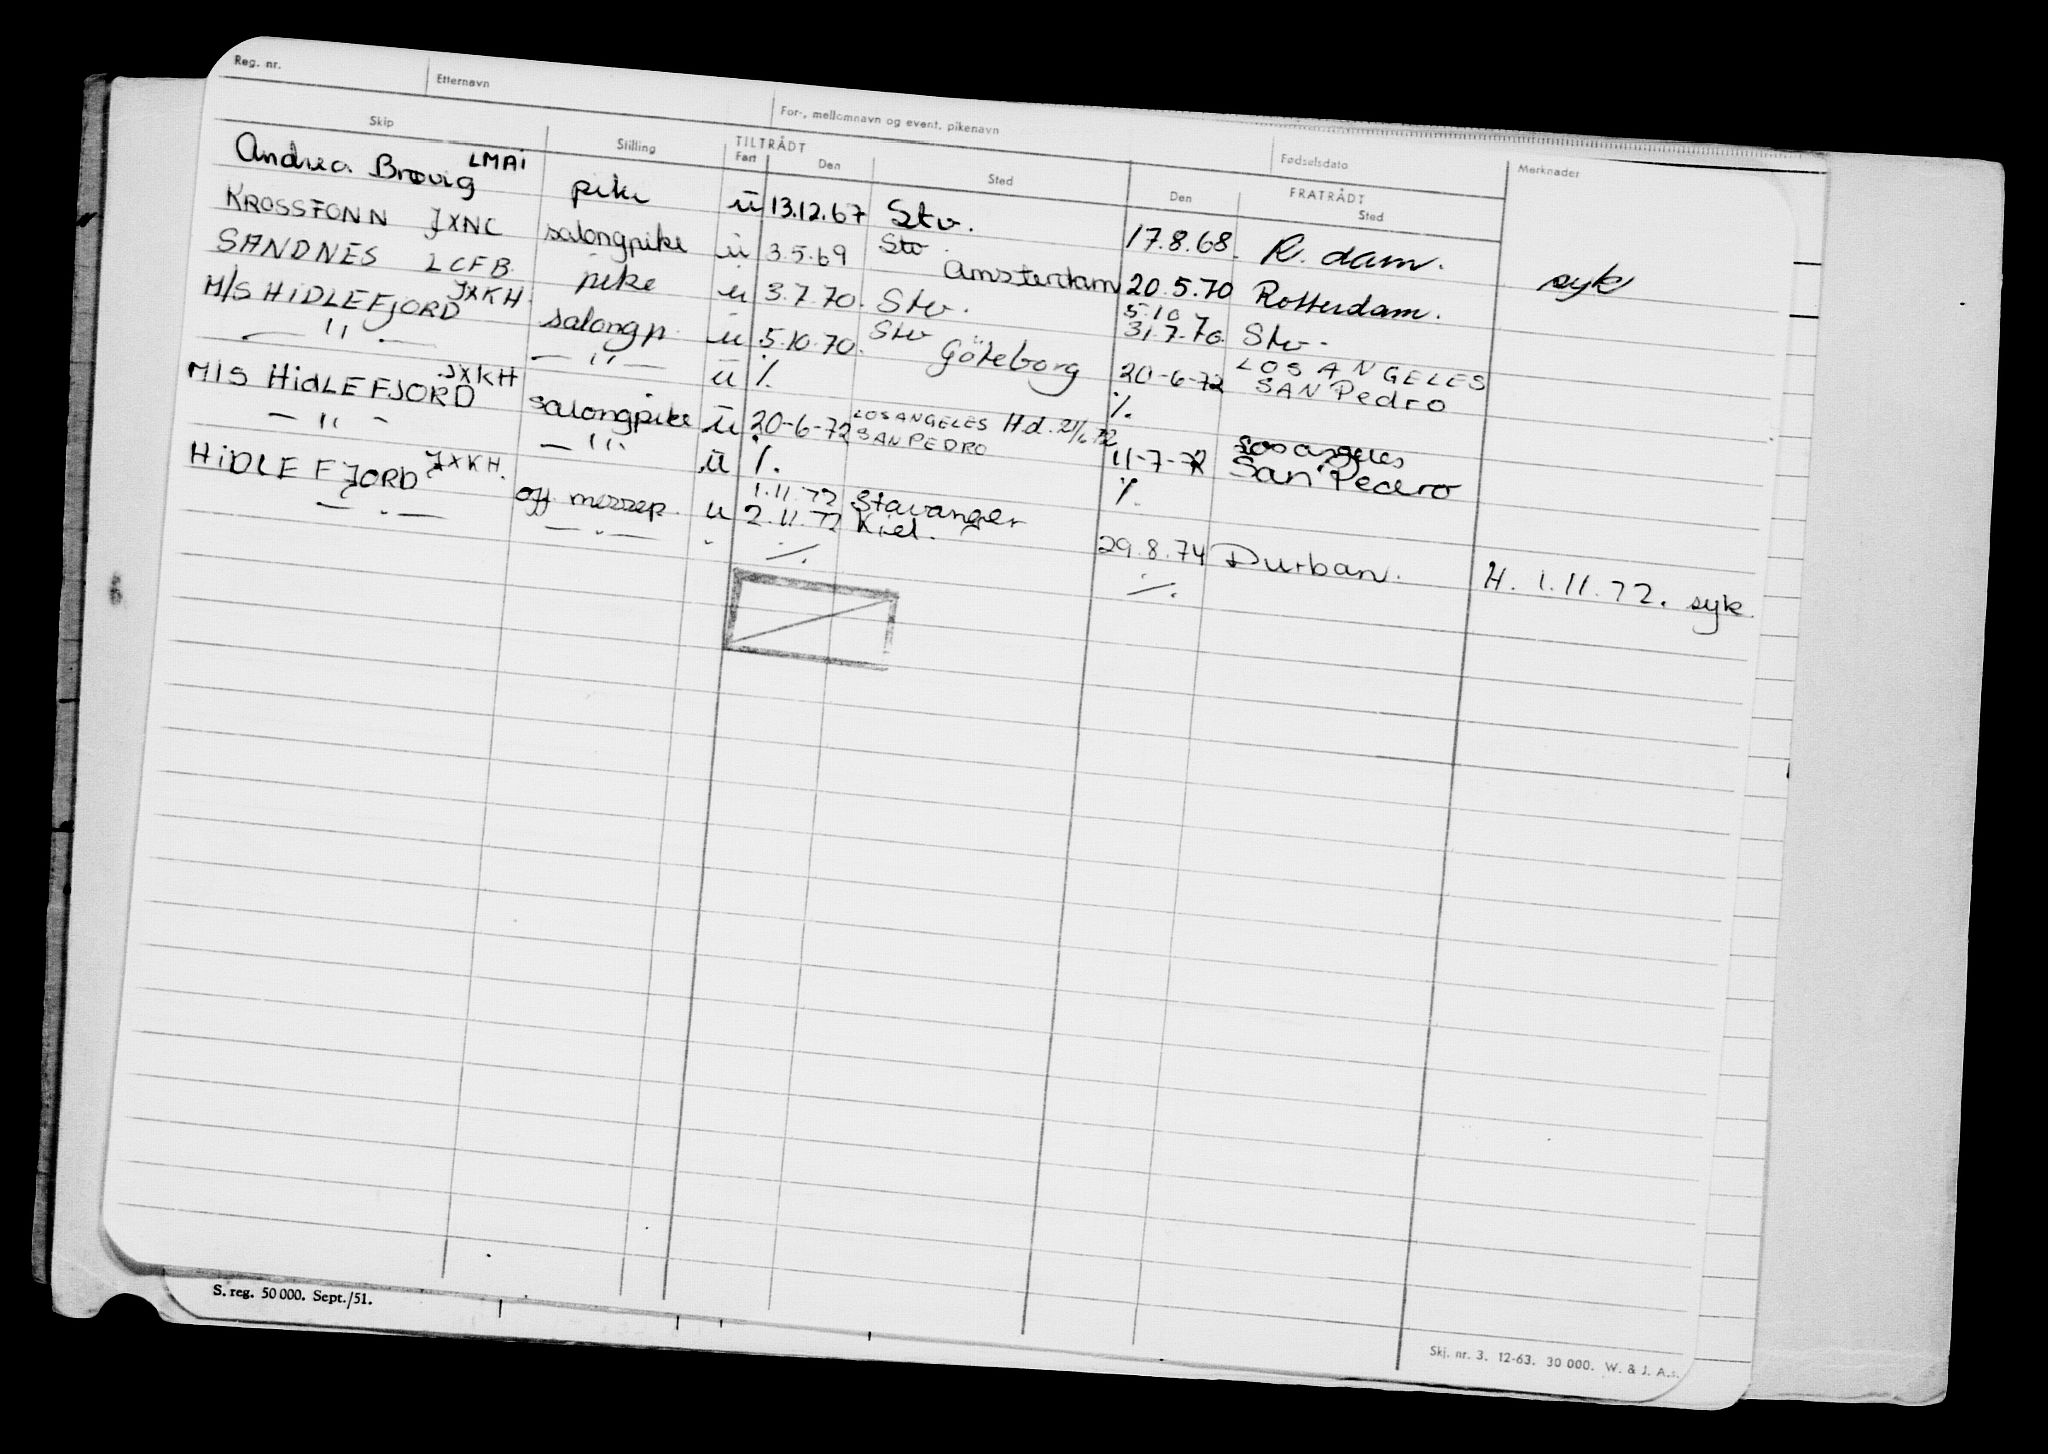 Reg. nr. Etternavn For-, mellomnavn og event. pikenavn Fødselsdato
Skip Stilling TILTRÅDT FRATRÅDT Merknader
Fart Den Sted Den Sted
Andrea Brøvig LMAI pike u 13.12.67 Stv. 17.8.68. R. dam. syk
KROSSFONN JXNC salongpike u 3.5.69 Stv. Amsterdam 20.5.70 Rotterdam.
SANDNES LCFB. pike u 3.7.70. Stv. 5.10 31.7.70. Stv.
M/S HIDLEFJORD JXKH. salongp. u 5.10.70. Stv Göteborg 20-6-72 LOS ANGELES SAN Pedro
— " — — " — u %. %.
M/S HIDLEFJORD JXKH salongpike u 20-6-72 LOS ANGELES SAN PEDRO H.d. 21/6 72 11-7-72 Los angeles San Pedro
— " - — " u %. %.
HIDLEFJORD JXKH. off. messep. u 1.11.72 Stavanger 2.11.72 Kiel. 29.8.74 Durban. H. 1.11.72. syk.
— . — — . — . %. %.
S. reg. 50 000. Sept./51.
Skj. nr. 3. 12-63. 30 000. W. & J. A.s.